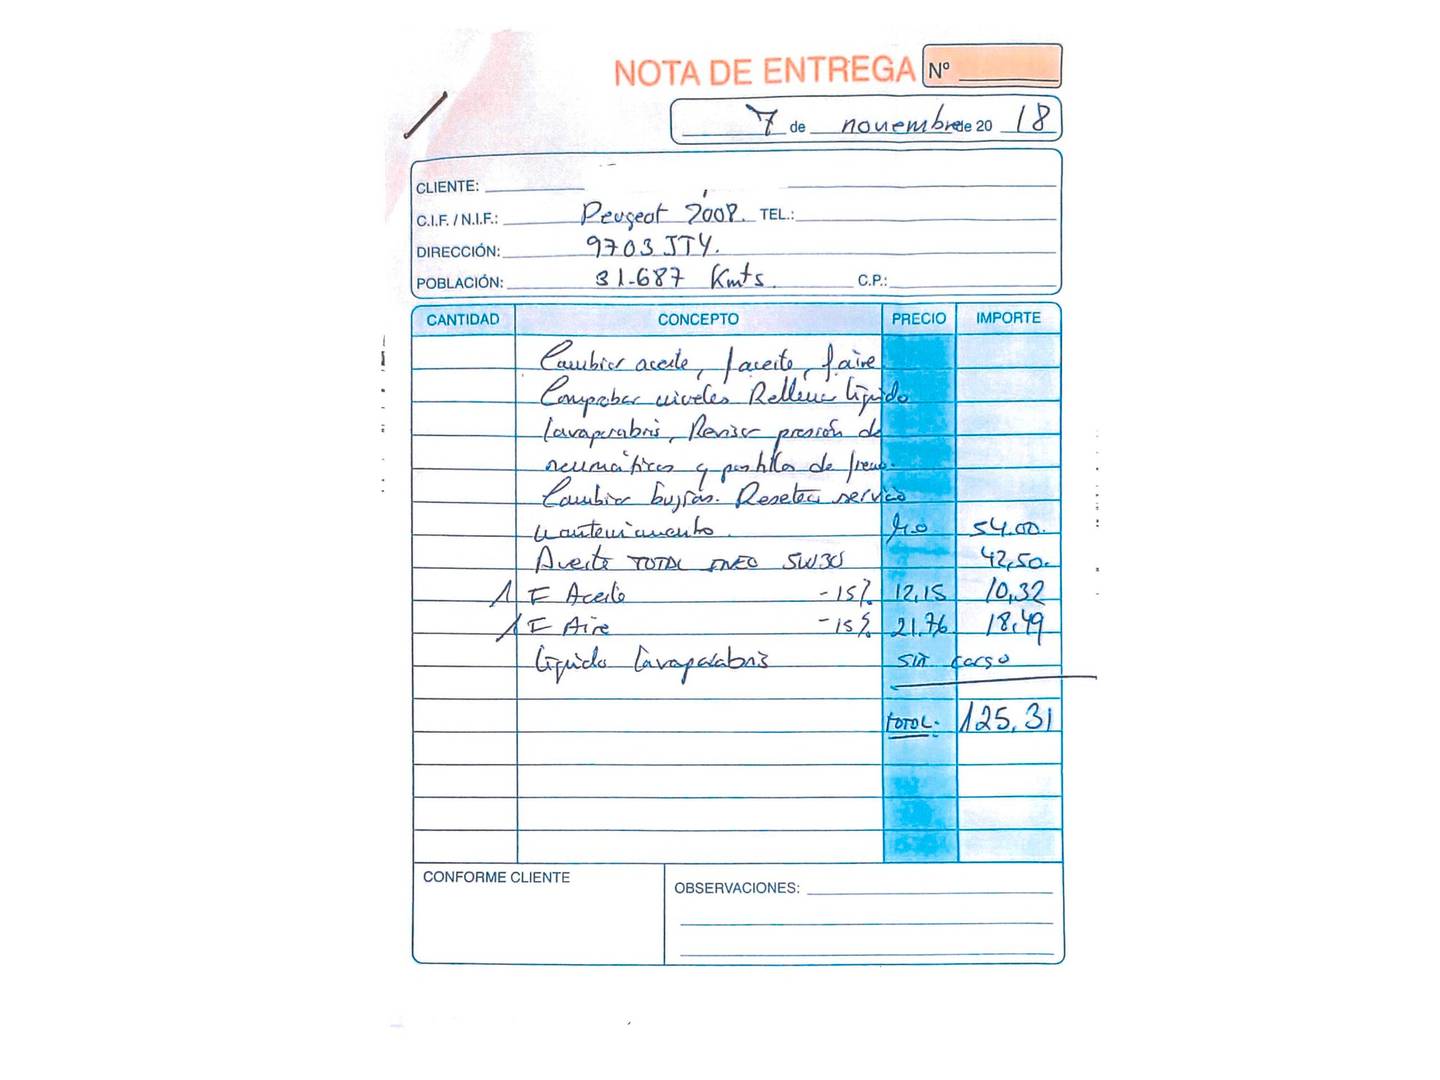 NOTA DE ENTREGA Nº
7 de novembre de 20 18
CLIENTE:
C.I.F. / N.I.F.: Peugeot 2008. TEL.:
DIRECCIÓN: 9703 JTY.
POBLACIÓN: 31.687 Kmts. C.P.:
CANTIDAD CONCEPTO PRECIO IMPORTE
Cambiar aceite, f aceite, f aire
Comprobar niveles Rellenar líquido
lavaparabris, Revisar presión de
neumáticos y pastillas de freno.
Cambiar bujías. Resetear servicio
mantenimiento. M.O 54.00.
Aceite TOTAL INEO 5W30 42,50.
1 F Aceite -15% 12,15 10,32
1 F Aire -15% 21,76 18,49
líquido lavaparabris sin cargo
TOTAL. 125,31
CONFORME CLIENTE
OBSERVACIONES: